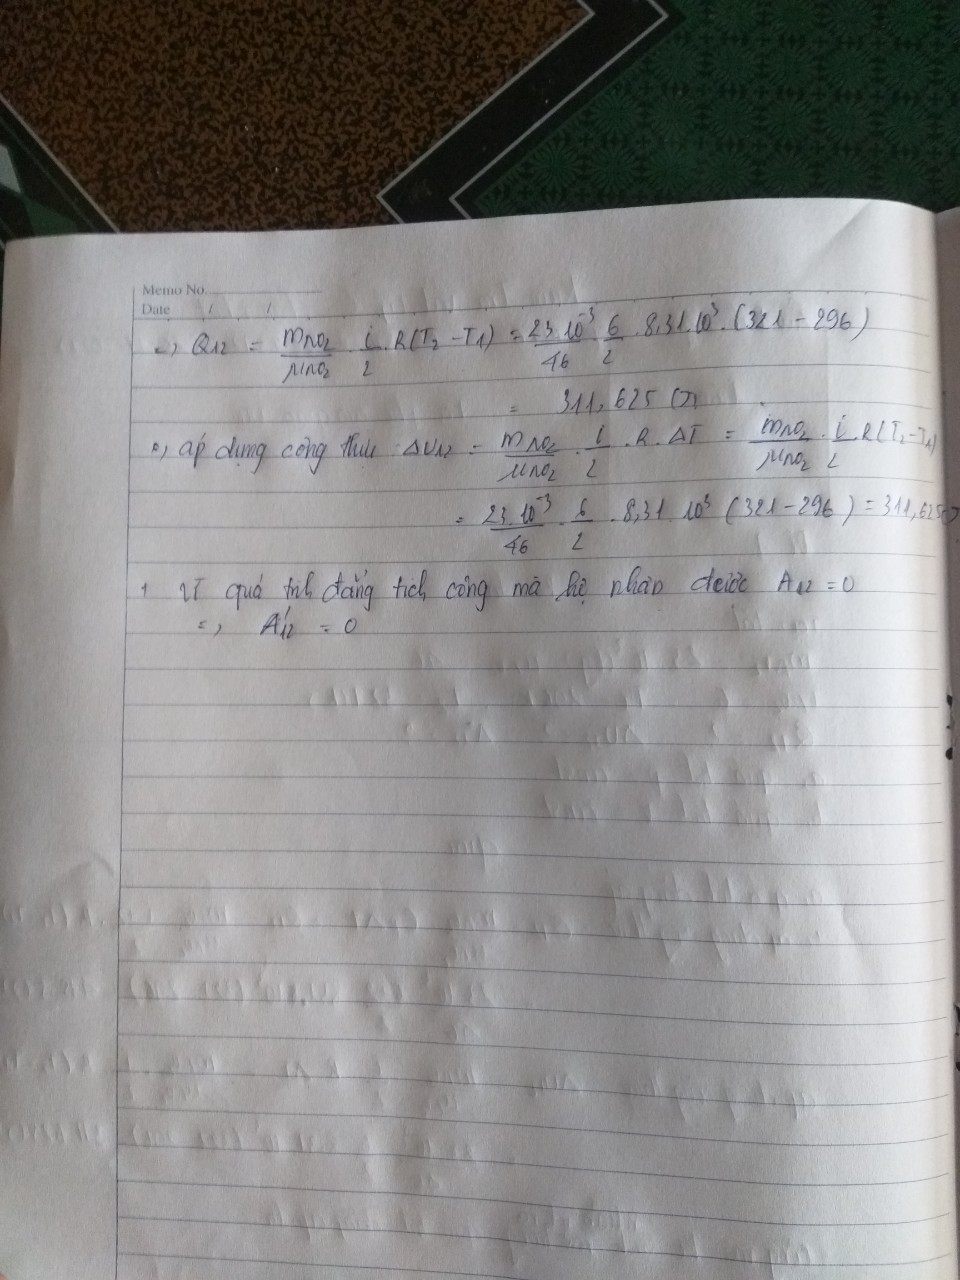 Memo No.
Date / /
=> Q12 = mNO2/μNO2 . i/2 . R(T2 - T1) = 23.10^-3/46 . 6/2 . 8,31.10^3 . (321 - 296)
= 311,625 (J)
áp dụng công thức ΔU12 = mNO2/μNO2 . i/2 . R . ΔT = mNO2/μNO2 . i/2 . R(T2 - T1)
= 23.10^-3/46 . 6/2 . 8,31 10^3 (321 - 296) = 311,625
+ Vì quá trìh đẳng tích công mà hệ nhận được A12 = 0
=> A'12 = 0